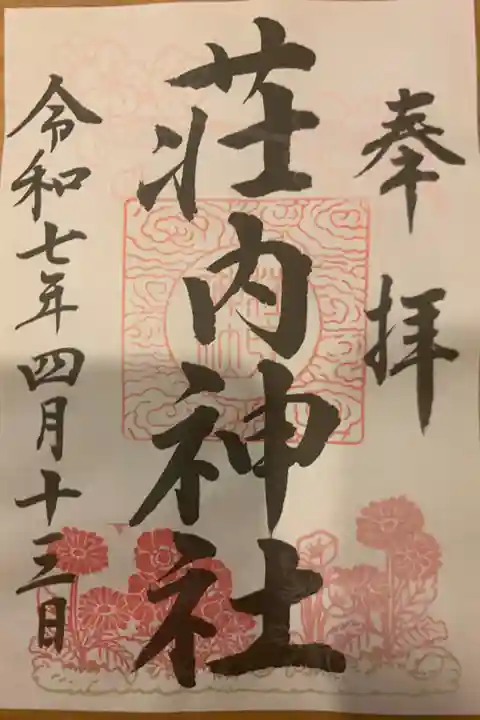 奉拝
荘内神社
令和七年四月十三日